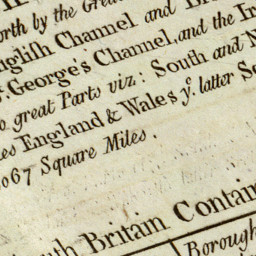 orth by the Great
nglish Channel and
St. George's Channel, and the
o great Parts viz: South and
es England & Wales ye. latter
067 Square Miles.
outh Britain Contain
Borough